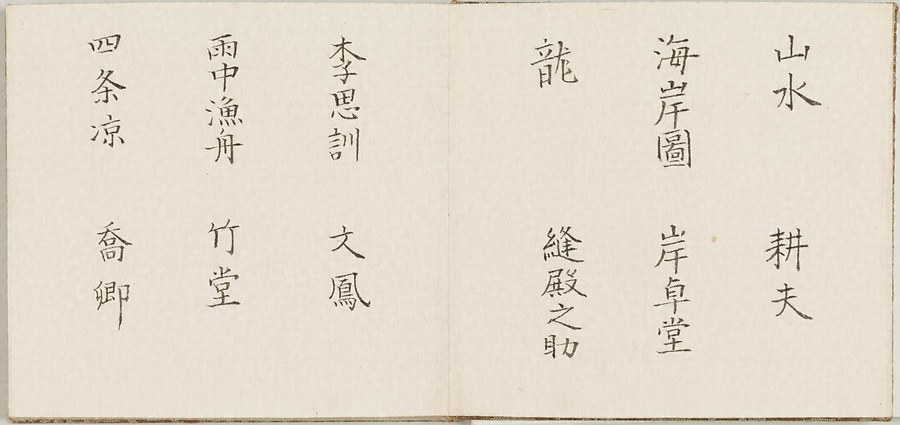 山水 耕夫
海岸圖 岸卓堂
龍 縫殿之助
李思訓 文鳳
雨中漁舟 竹堂
四条凉 喬卿